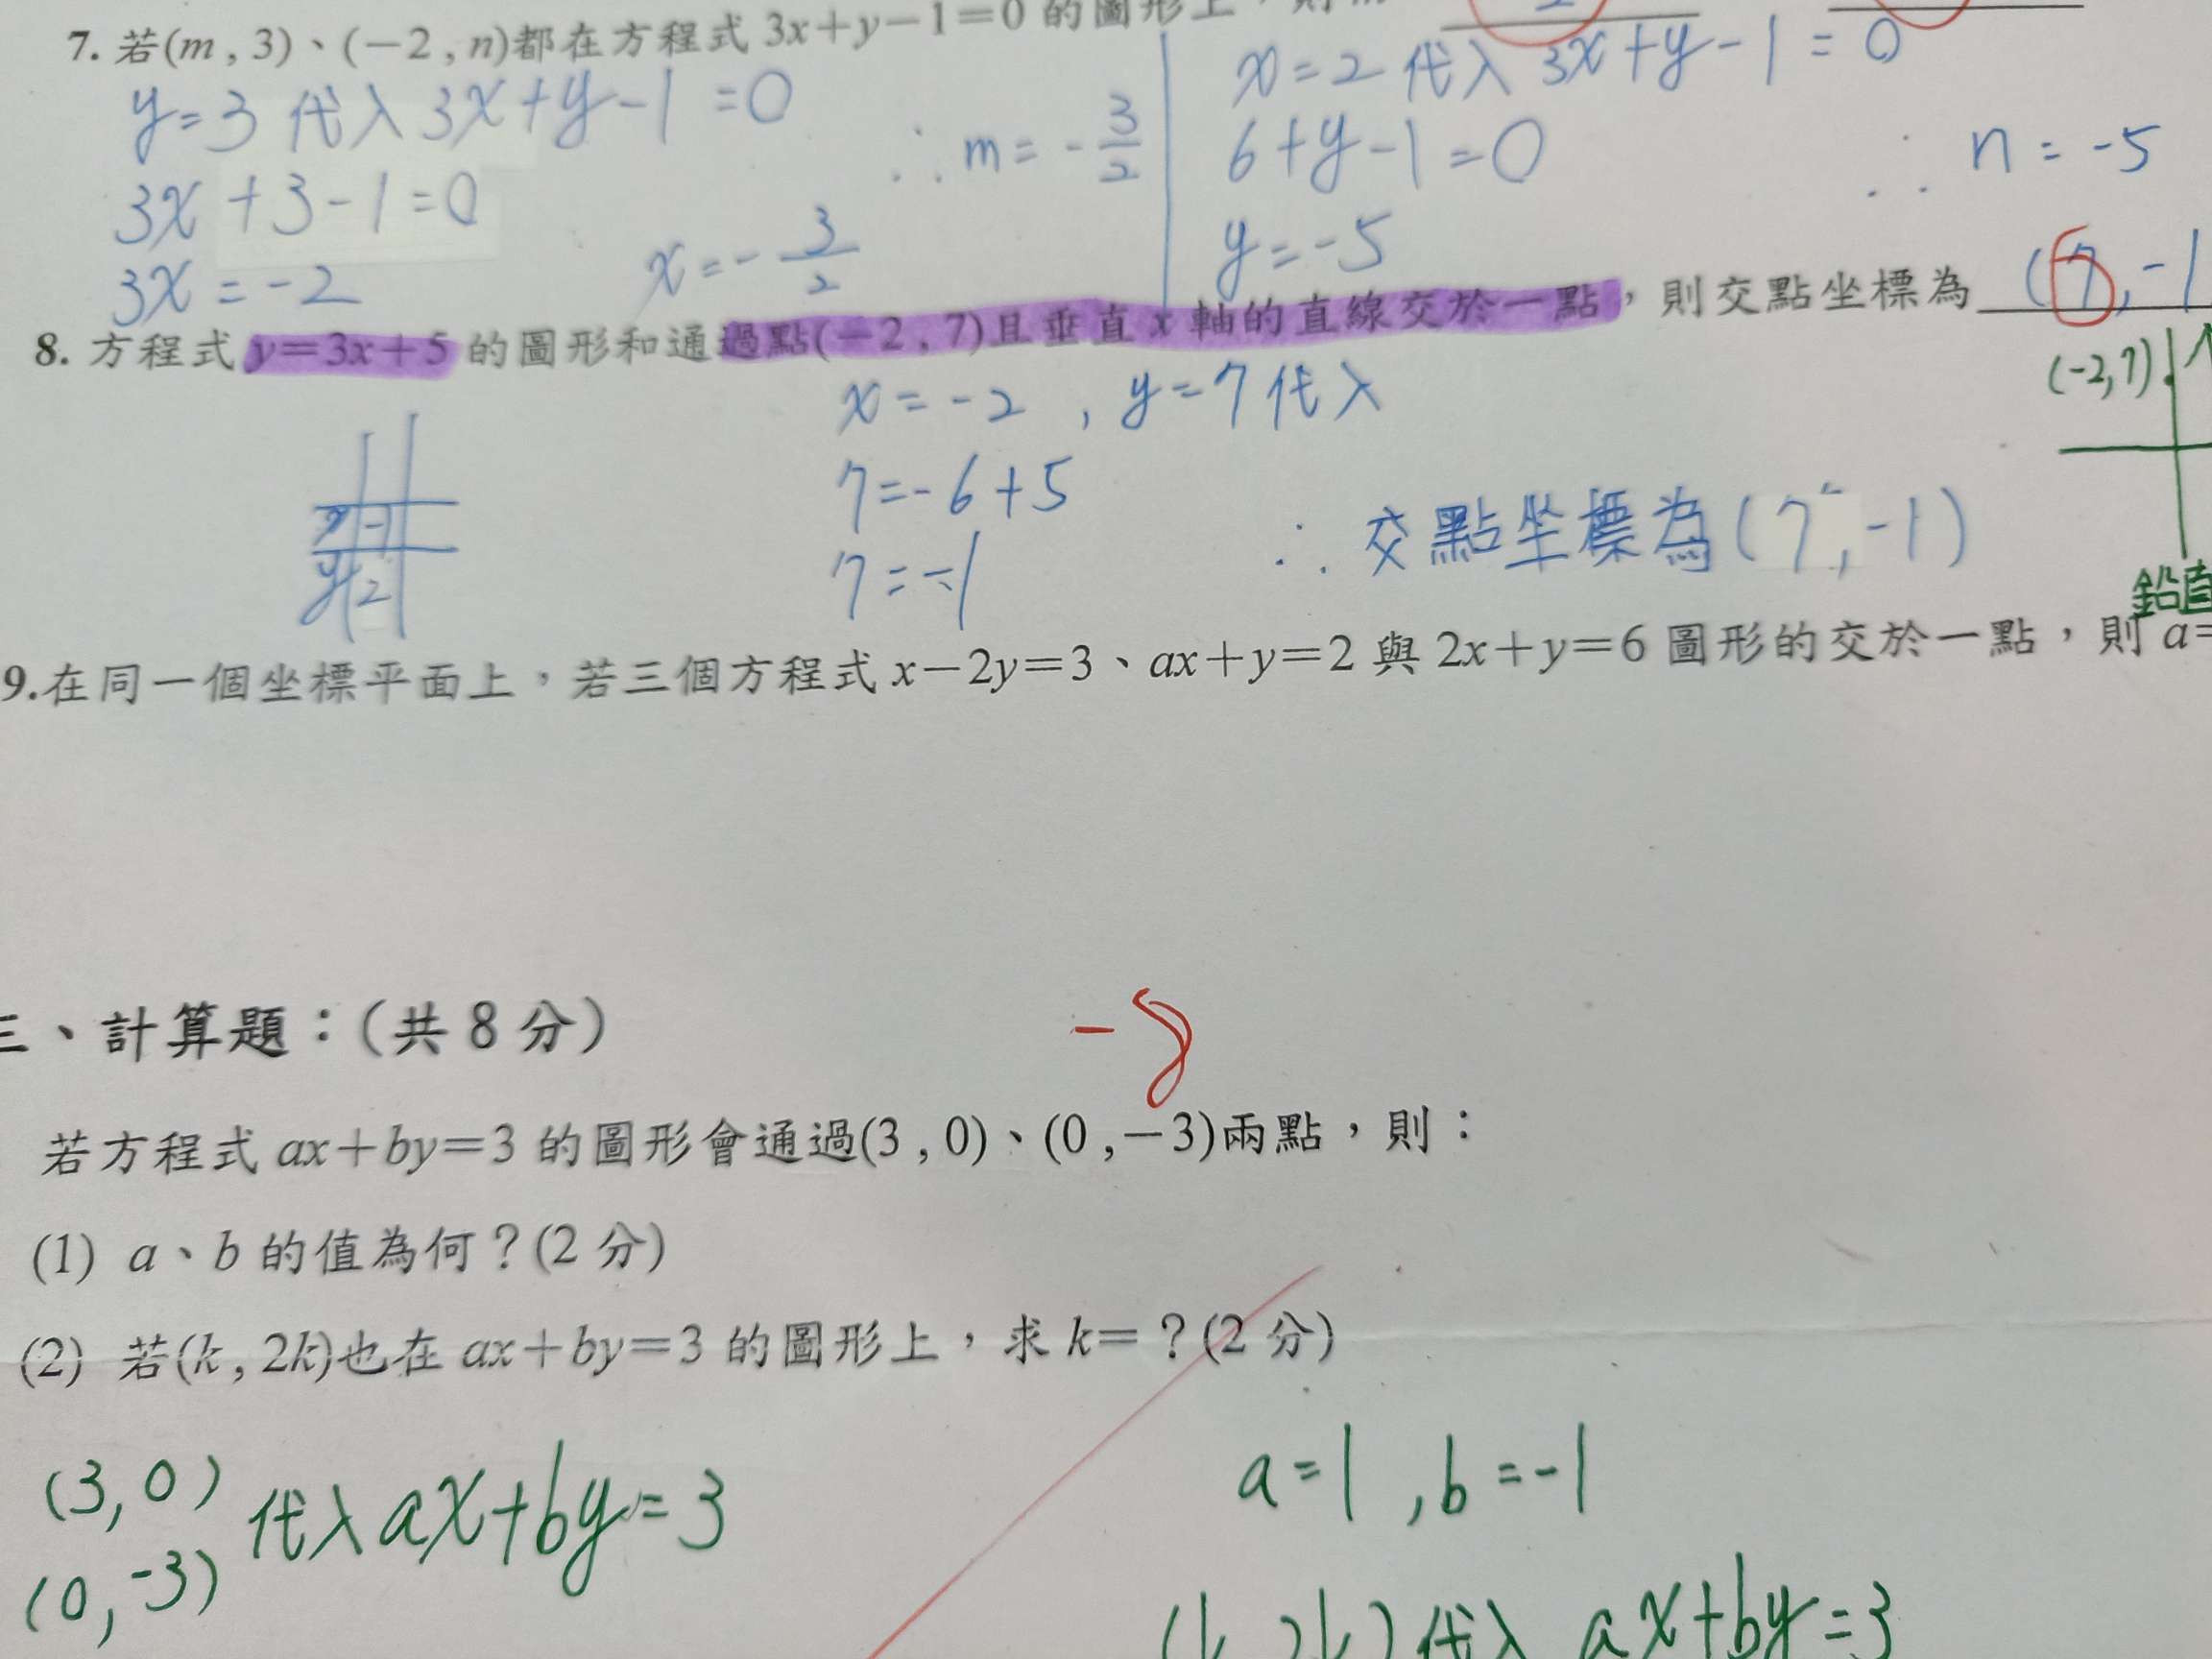 7. 若(m , 3)、(－2 , n)都在方程式 3x＋y－1＝0 的圖形上，則
y=3 代入 3x+y-1=0
3x+3-1=0
3x=-2
x=-3/2
∴m=-3/2
x=2 代入 3x+y-1=0
6+y-1=0
y=-5
∴ n=-5
8. 方程式 y＝3x＋5 的圖形和通過點(－2 , 7)且垂直 x 軸的直線交於一點，則交點坐標為 (7,-1
x=-2 , y=7 代入
7=-6+5
7=-1
∴交點坐標為(7,-1)
(-2,7)
鉛直
9.在同一個坐標平面上，若三個方程式 x－2y＝3、ax＋y＝2 與 2x＋y＝6 圖形的交於一點，則 a＝
三、計算題：(共 8 分)
-8
若方程式 ax＋by＝3 的圖形會通過(3 , 0)、(0 ,－3)兩點，則：
(1) a、b 的值為何？(2 分)
(2) 若(k , 2k)也在 ax＋by＝3 的圖形上，求 k＝？(2 分)
(3,0)
(0,-3)
代入 ax+by=3
a=1 , b=-1
(k,2k) 代入 ax+by=3